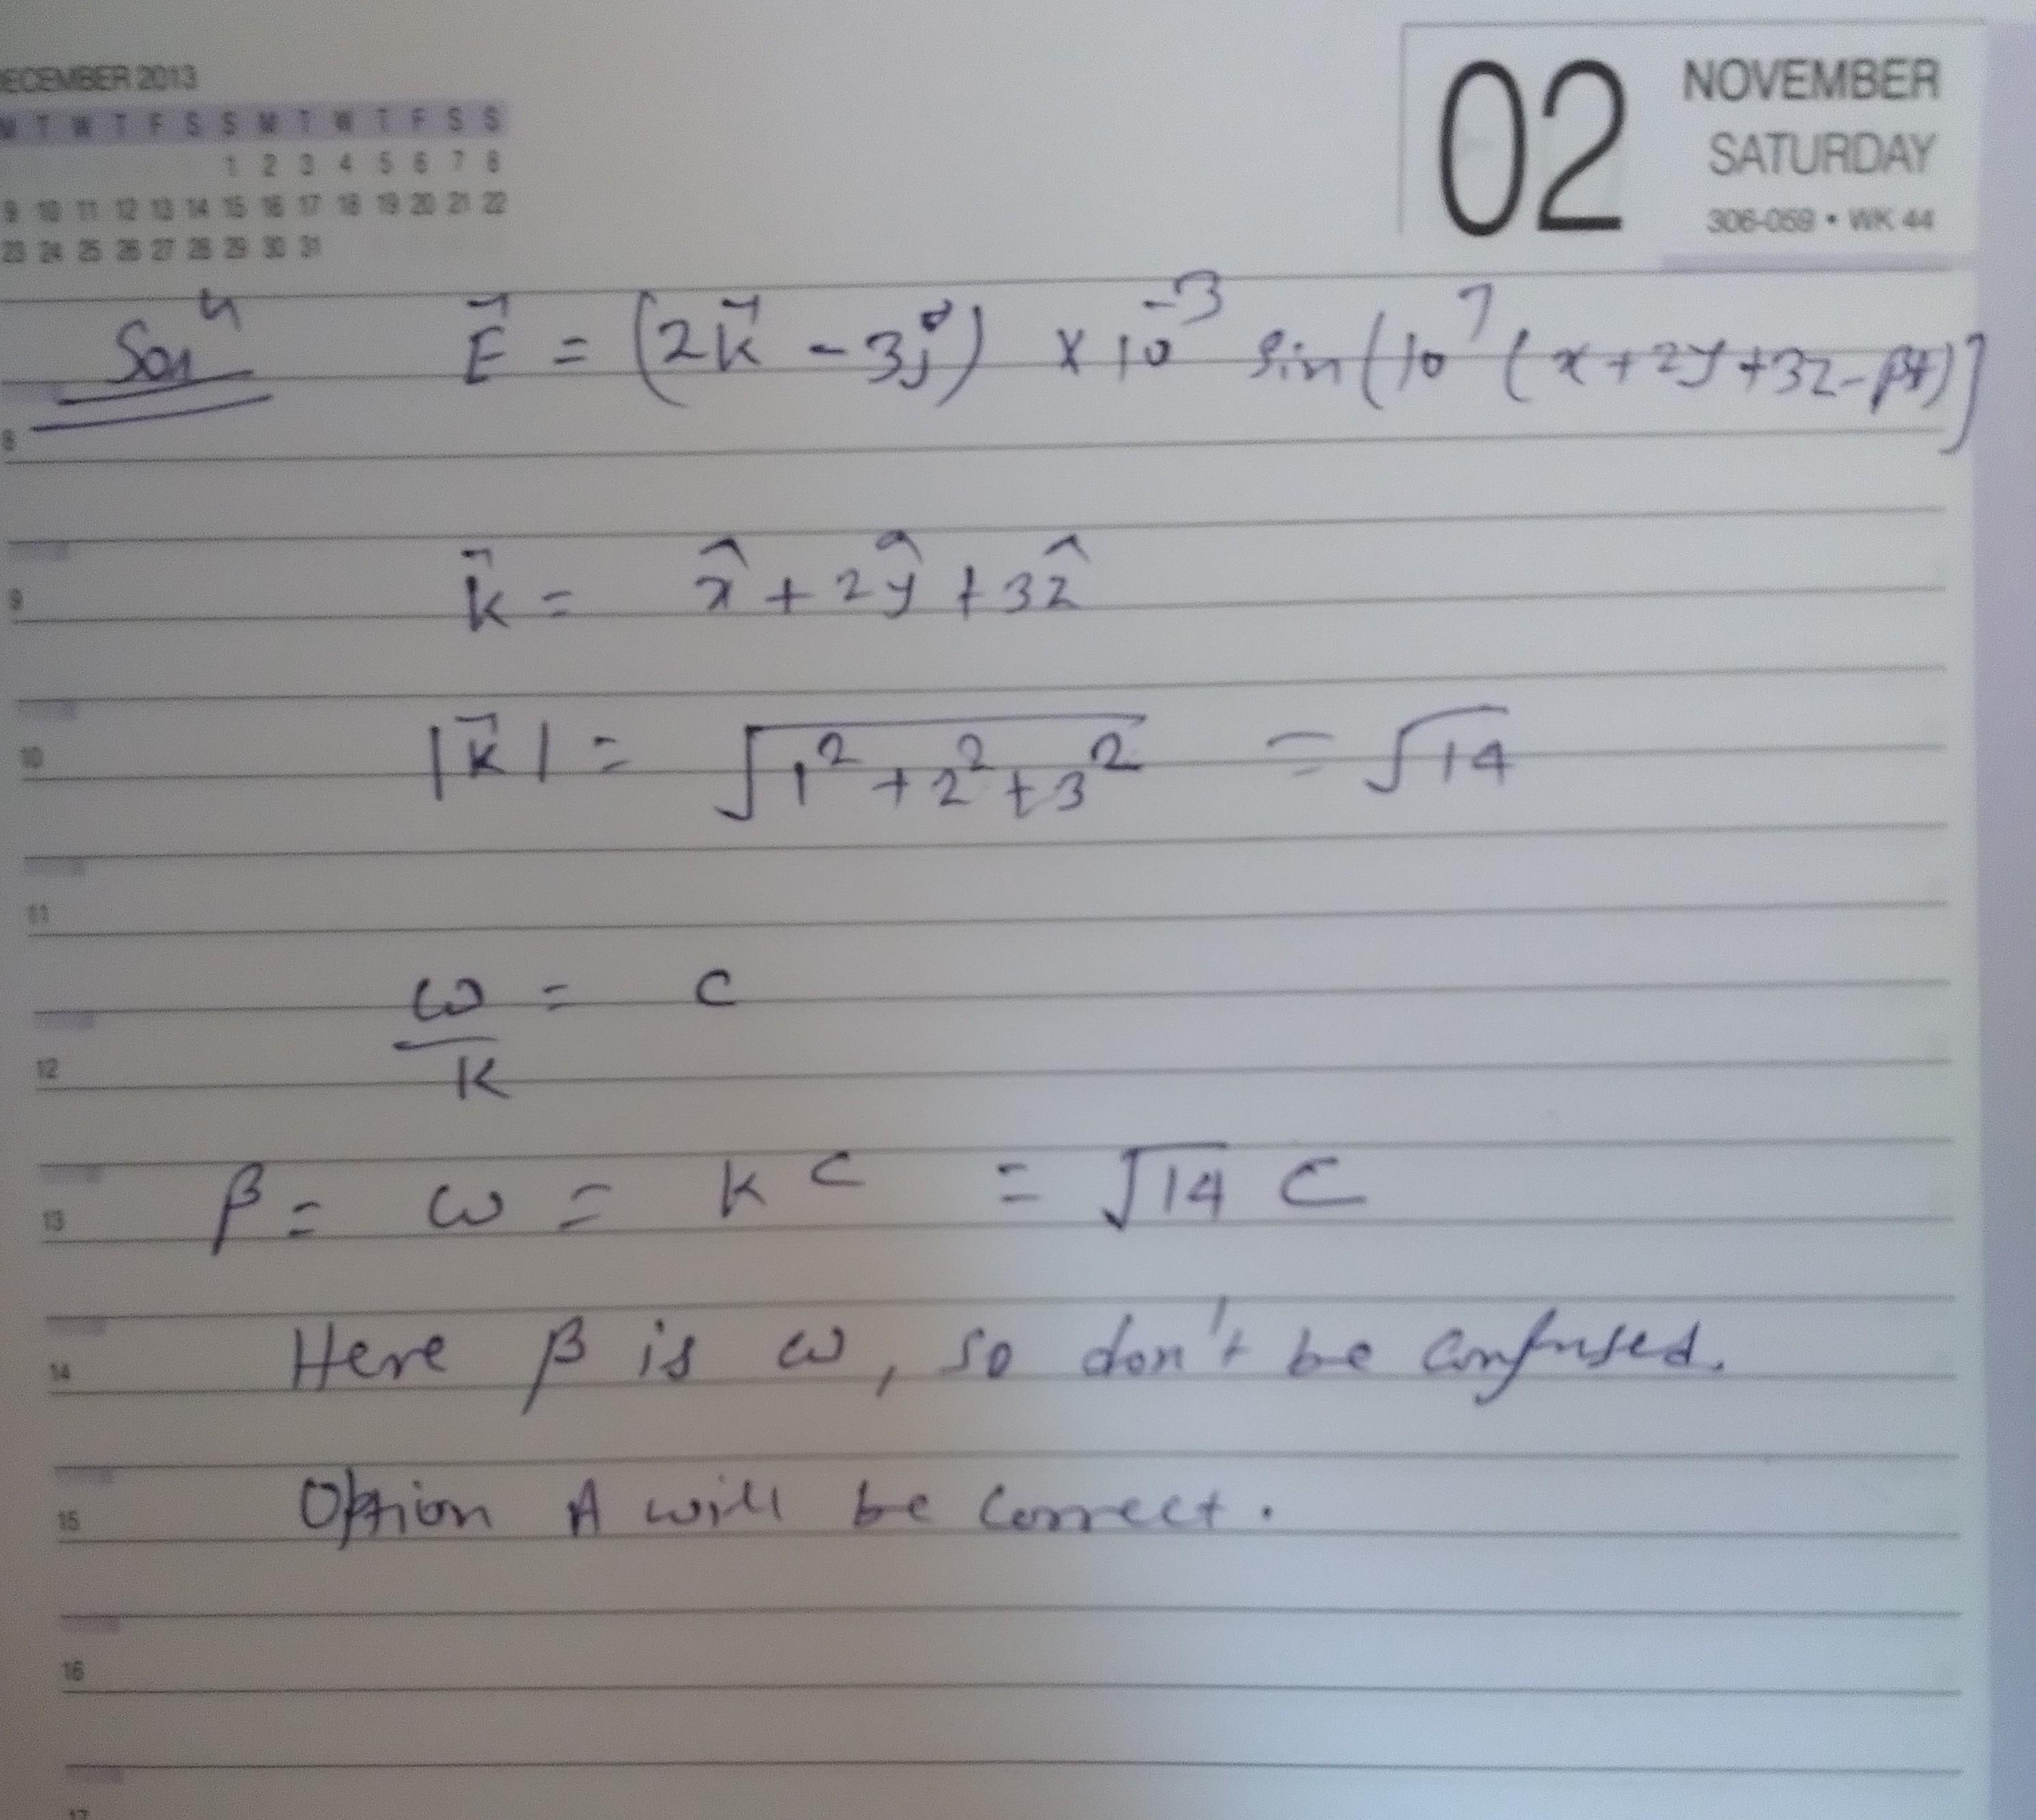 DECEMBER 2013
M T W T F S S M T W T F S S
1 2 3 4 5 6 7 8
9 10 11 12 13 14 15 16 17 18 19 20 21 22
23 24 25 26 27 28 29 30 31
02 NOVEMBER
SATURDAY
306-059 • WK 44
Solⁿ E⃗ = (2k⃗ - 3j⃗) × 10⁻³ sin[10⁷(x+2y+3z-βt)]
8
9 k⃗ = x̂ + 2ŷ + 3ẑ
10 |k⃗| = √(1² + 2² + 3²) = √14
11
ω/k = c
12
13 β = ω = kc = √14 c
14 Here β is ω, so don't be confused.
15 Option A will be correct.
16
17